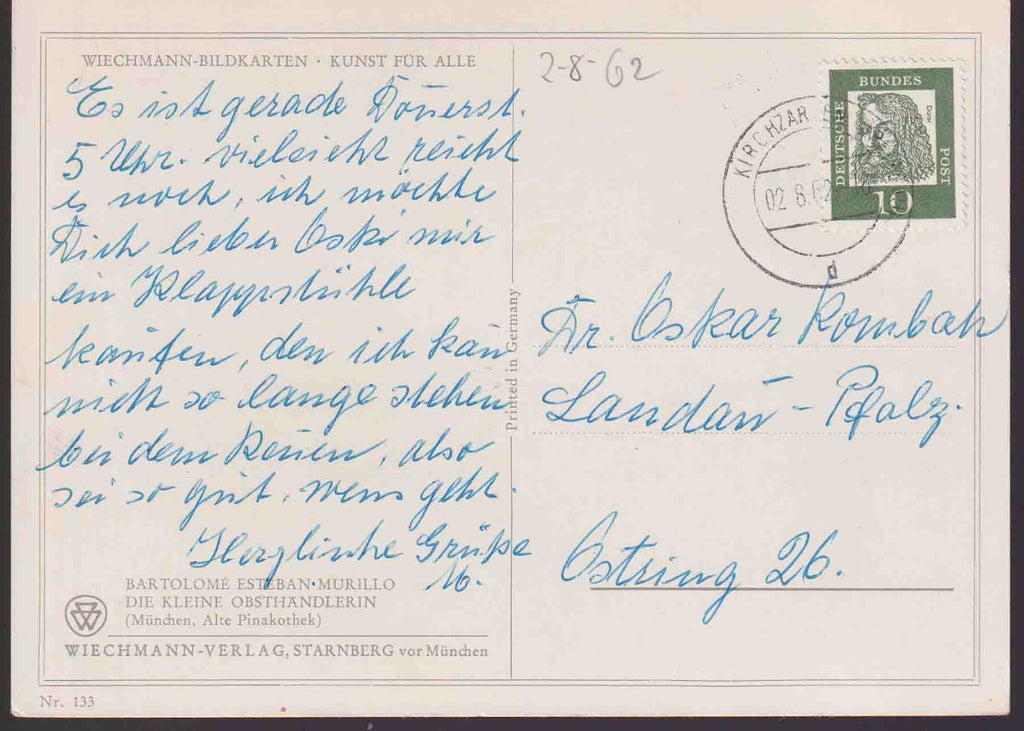 WIECHMANN-BILDKARTEN · KUNST FÜR ALLE
Es ist gerade Donerst.
5 Uhr. vielleicht reicht
es noch, ich möchte
Dich lieber Oski mir
ein Klappstühle
kaufen, den ich kan
nicht so lange stehen
bei dem Renen, also
sei so gut, wens geht.
Herzlinche Grüße
M.
BARTOLOMÉ ESTEBAN·MURILLO
DIE KLEINE OBSTHÄNDLERIN
(München, Alte Pinakothek)
WIECHMANN-VERLAG, STARNBERG vor München
Nr. 133
Printed in Germany
2-8-62
KIRCHZAR
02.8.62
d
DEUTSCHE
BUNDES
POST
Dürer
10
Dr. Oskar Rombach
Landau - Pfalz.
Ostring 26.